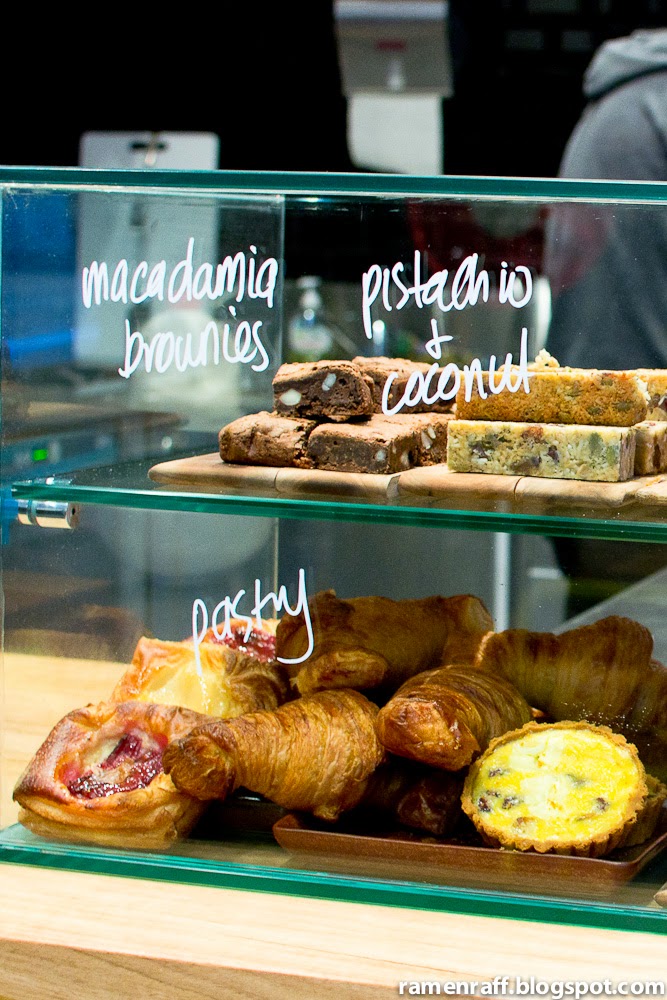 macadamia
brownies
pistachio
+
coconut
pastry
ramenraff.blogspot.com